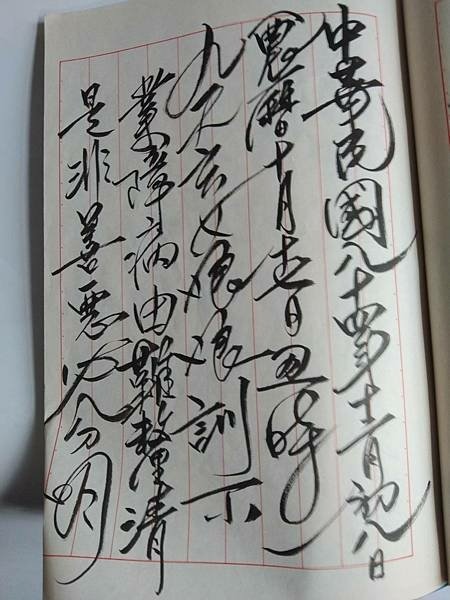 中華民國八十四年十二月初八日
農曆十月十七日丑時
九天玄女娘娘訓示
業障病由難整清
是非善惡必分明